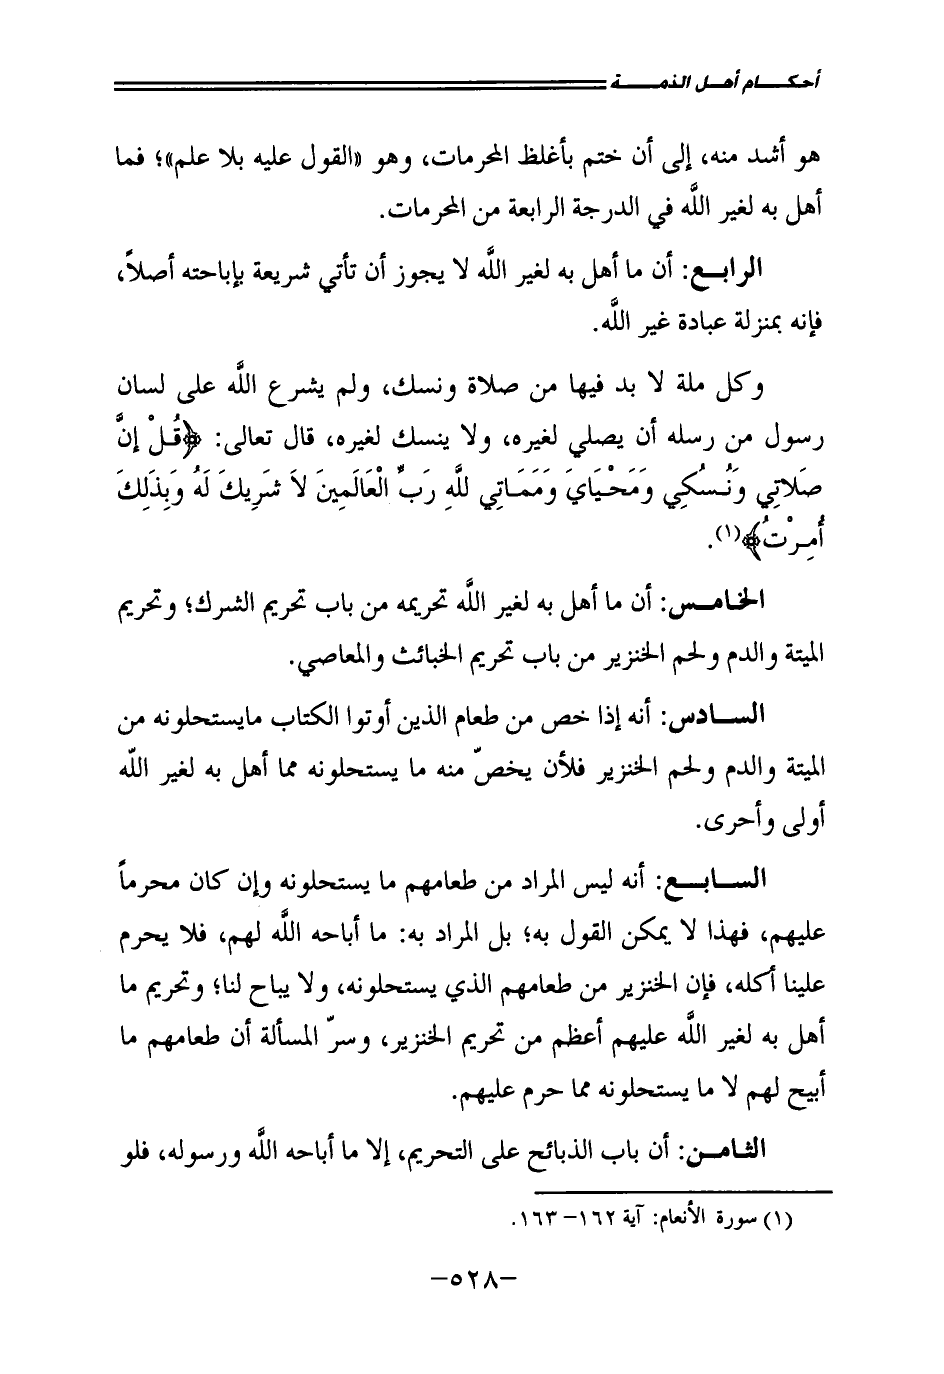 أحكـــام أهـل الذمـــة
هو أشد منه، إلى أن ختم بأغلظ المحرمات، وهو «القول عليه بلا علم»؛ فما
أهل به لغير اللَّه في الدرجة الرابعة من المحرمات.
الرابـع: أن ما أهل به لغير اللَّه لا يجوز أن تأتي شريعة بإباحته أصلاً،
فإنه بمنزلة عبادة غير اللَّه.
وكل ملة لا بد فيها من صلاة ونسك، ولم يشرع اللَّه على لسان
رسول من رسله أن يصلي لغيره، ولا ينسك لغيره، قال تعالى: ﴿قُـلْ إنَّ
صَلاتِي وَنُـسُكِي وَمَحْيَايَ وَمَمَـاتِي للَّهِ رَبِّ الْعَالَمِينَ لاَ شَرِيكَ لَهُ وَبِذَلِكَ
أُمِـرْتُ﴾(١).
الخامـس: أن ما أهل به لغير اللَّه تحريمه من باب تحريم الشرك؛ وتحريم
الميتة والدم ولحم الخنزير من باب تحريم الخبائث والمعاصي.
السـادس: أنه إذا خص من طعام الذين أوتوا الكتاب مايستحلونه من
الميتة والدم ولحم الخنزير فلأن يخصّ منه ما يستحلونه مما أهل به لغير اللَّه
أولى وأحرى.
السـابـع: أنه ليس المراد من طعامهم ما يستحلونه وإن كان محرماً
عليهم، فهذا لا يمكن القول به؛ بل المراد به: ما أباحه اللَّه لهم، فلا يحرم
علينا أكله، فإن الخنزير من طعامهم الذي يستحلونه، ولا يباح لنا؛ وتحريم ما
أهل به لغير اللَّه عليهم أعظم من تحريم الخنزير، وسرّ المسألة أن طعامهم ما
أبيح لهم لا ما يستحلونه مما حرم عليهم.
الثـامـن: أن باب الذبائح على التحريم، إلا ما أباحه اللَّه ورسوله، فلو
(١) سورة الأنعام: آية ١٦٢-١٦٣.
-٥٢٨-